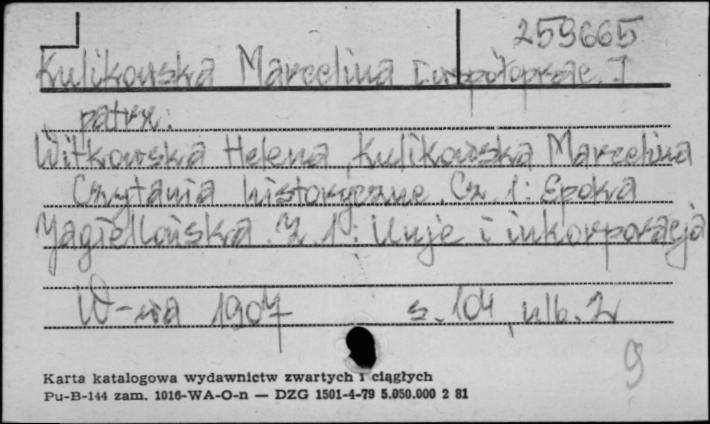 259665
Kulikowska Marcelina [współoprac.]
patrz:
Witkowska Helena, Kulikowska Marcelina
Czytania historyczne. Cz. 1: Epoka
Jagiellońska. Z. 1: Unje i inkorporacja
W-wa 1907 s. 104, nlb. 2
9
Karta katalogowa wydawnictw zwartych i ciągłych
Pu-B-144 zam. 1016-WA-O-n — DZG 1501-4-79 5.050.000 2 81